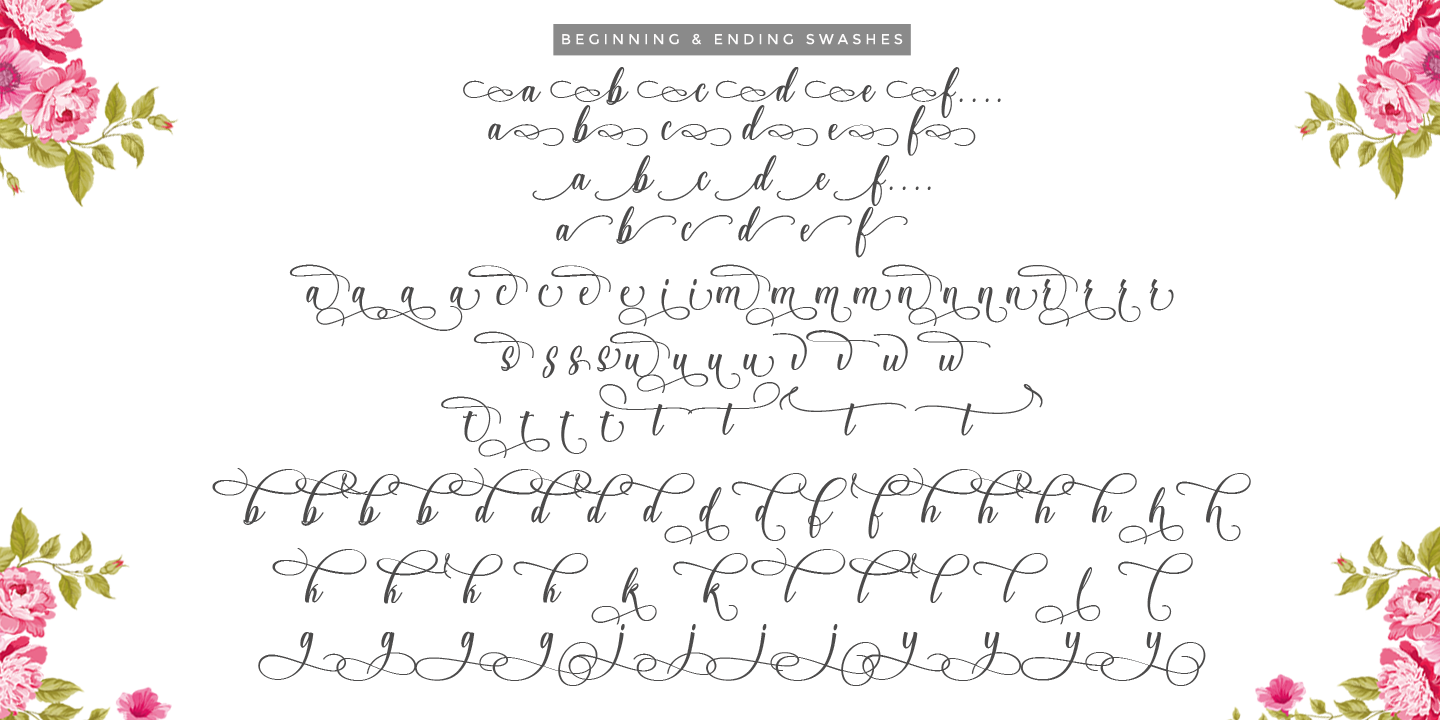 BEGINNING & ENDING SWASHES
a b c d e f....
a b c d e f
a b c d e f....
a b c d e f
a a a a c c e e i i m m m m n n n n r r r r
s s s s u u u u v v w w
t t t t t t t t
b b b b d d d d d d f f h h h h h h
k k k k k k l l l l l l
g g g g j j j j y y y y